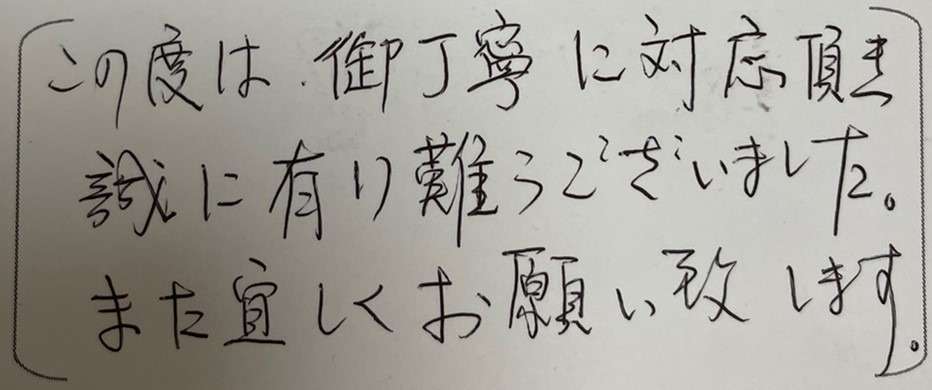 この度は、御丁寧に対応頂き
誠に有り難うございました。
また宜しくお願い致します。